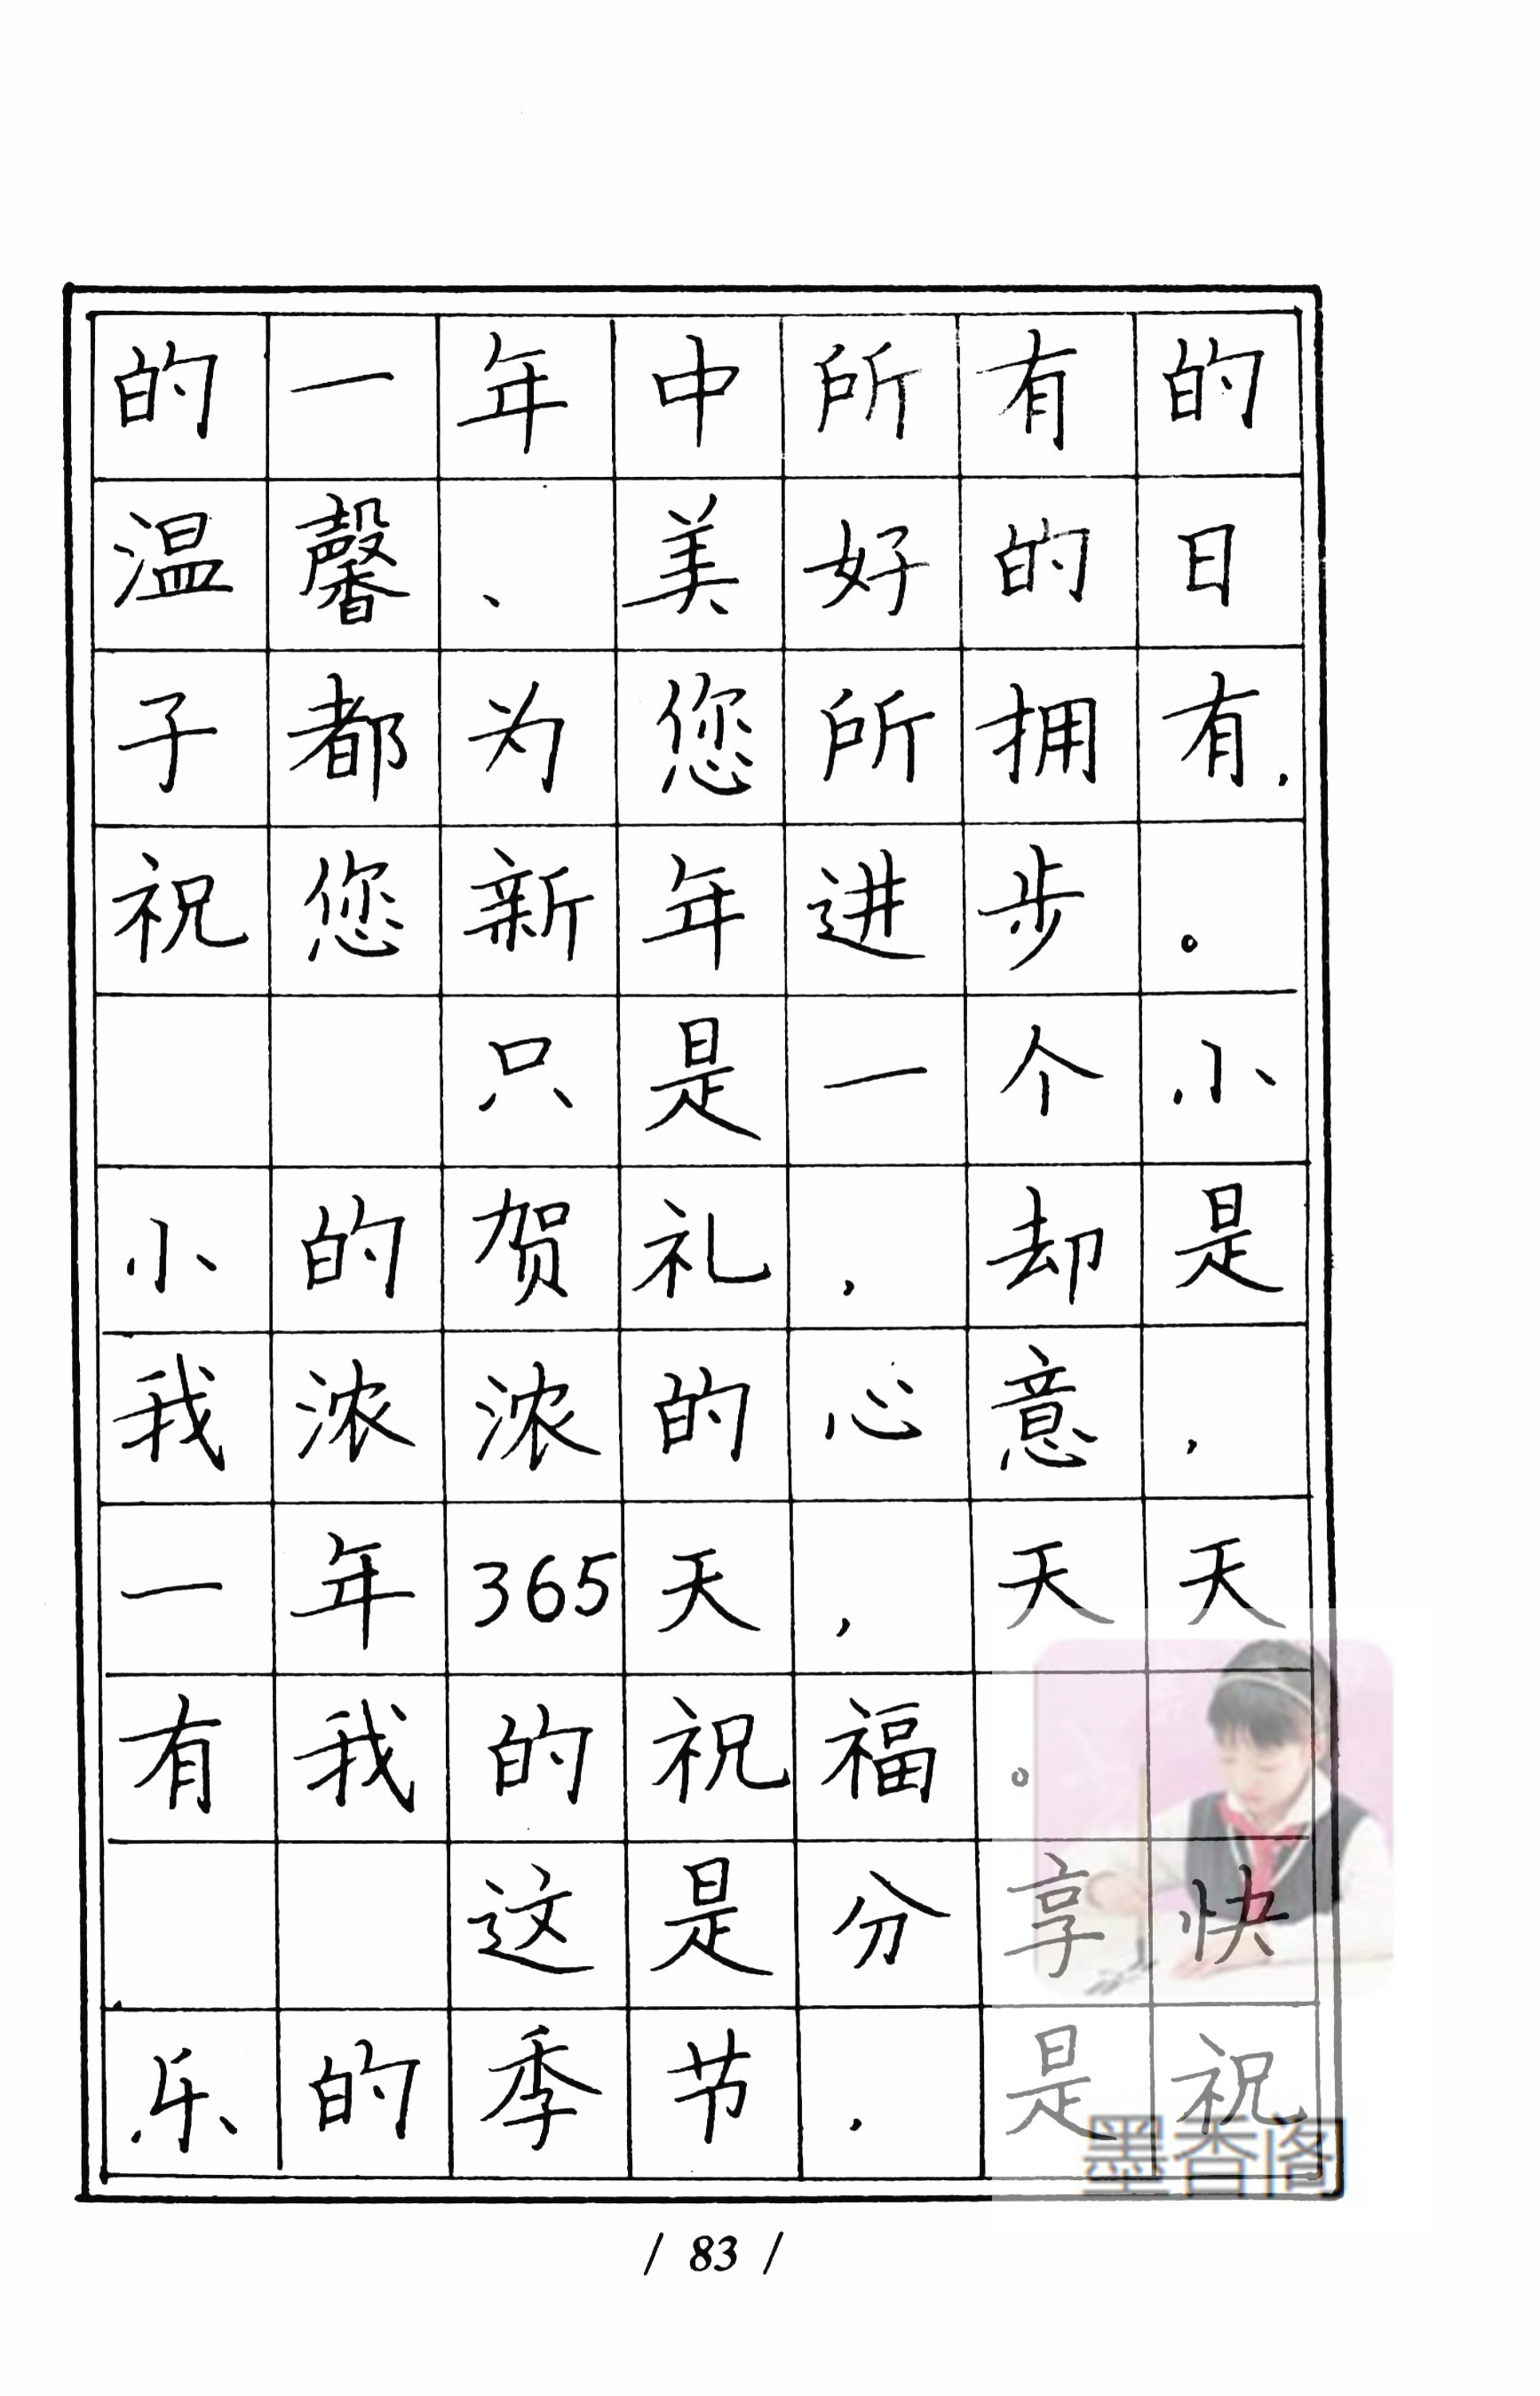 的一年中所有的
温馨、美好的日
子都为您所拥有，
祝您新年进步。
只是一个小
小的贺礼，却是
我浓浓的心意，
一年365天，天天
有我的祝福。
这是分享快
乐的季节，是祝
墨香阁
/ 83 /